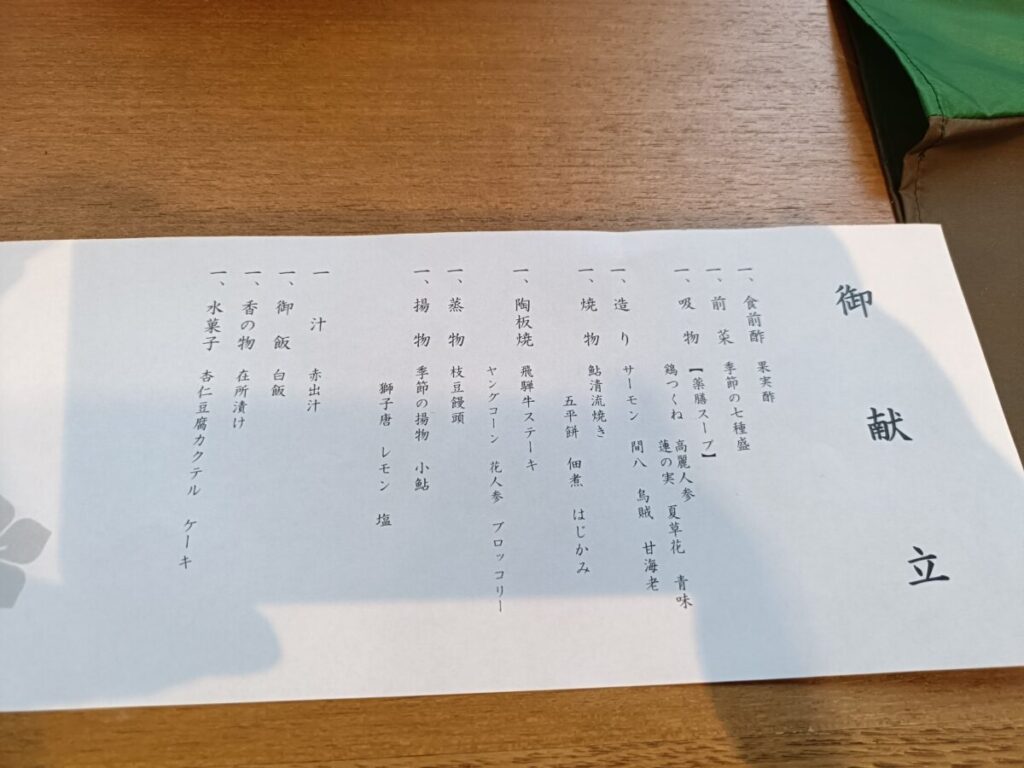 御献立
一、食前酢 果実酢
一、前菜 季節の七種盛
一、吸物 【薬膳スープ】
鶏つくね 高麗人参 夏草花 青味
蓮の実
一、造り サーモン 間八 烏賊 甘海老
一、焼物 鮎清流焼き
五平餅 佃煮 はじかみ
一、陶板焼 飛騨牛ステーキ
ヤングコーン 花人参 ブロッコリー
一、蒸物 枝豆饅頭
一、揚物 季節の揚物 小鮎
獅子唐 レモン 塩
一 汁 赤出汁
一、御飯 白飯
一、香の物 在所漬け
一、水菓子 杏仁豆腐カクテル ケーキ